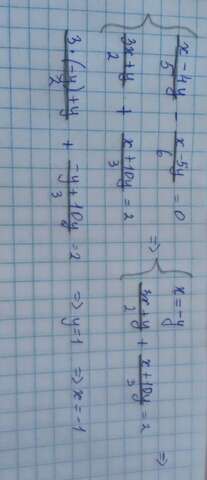 { (x-4y)/5 - (x-5y)/6 = 0
{ (3x+y)/2 + (x+10y)/3 = 2 =>
{ x = -y
{ (3x+y)/2 + (x+10y)/3 = 2 =>
(3·(-y)+y)/2 + (-y+10y)/3 = 2 => y=1 => x=-1